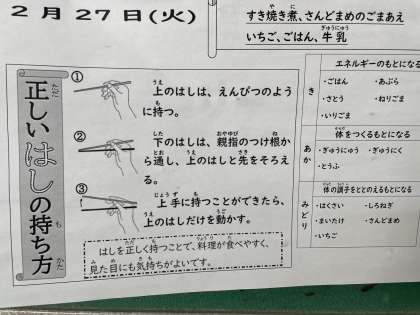 2月27日(火)
すき焼き煮、さんどまめのごまあえ
いちご、ごはん、牛乳
正しいはしの持ち方
①
上のはしは、えんぴつのよう
に持つ。
②
下のはしは、親指のつけ根か
ら通し、上のはしと先をそろえ
る。
③
上手に持つことができたら、
上のはしだけを動かす。
はしを正しく持つことで、料理が食べやすく、
見た目にも気持ちがよいです。
エネルギーのもとになる
き
・ごはん ・あぶら
・さとう ・ねりごま
・いりごま
体をつくるもとになる
あか
・ぎゅうにゅう ・ぎゅうにく
・とうふ
体の調子をととのえるもとになる
みどり
・はくさい ・しらねぎ
・まいたけ ・さんどまめ
・いちご